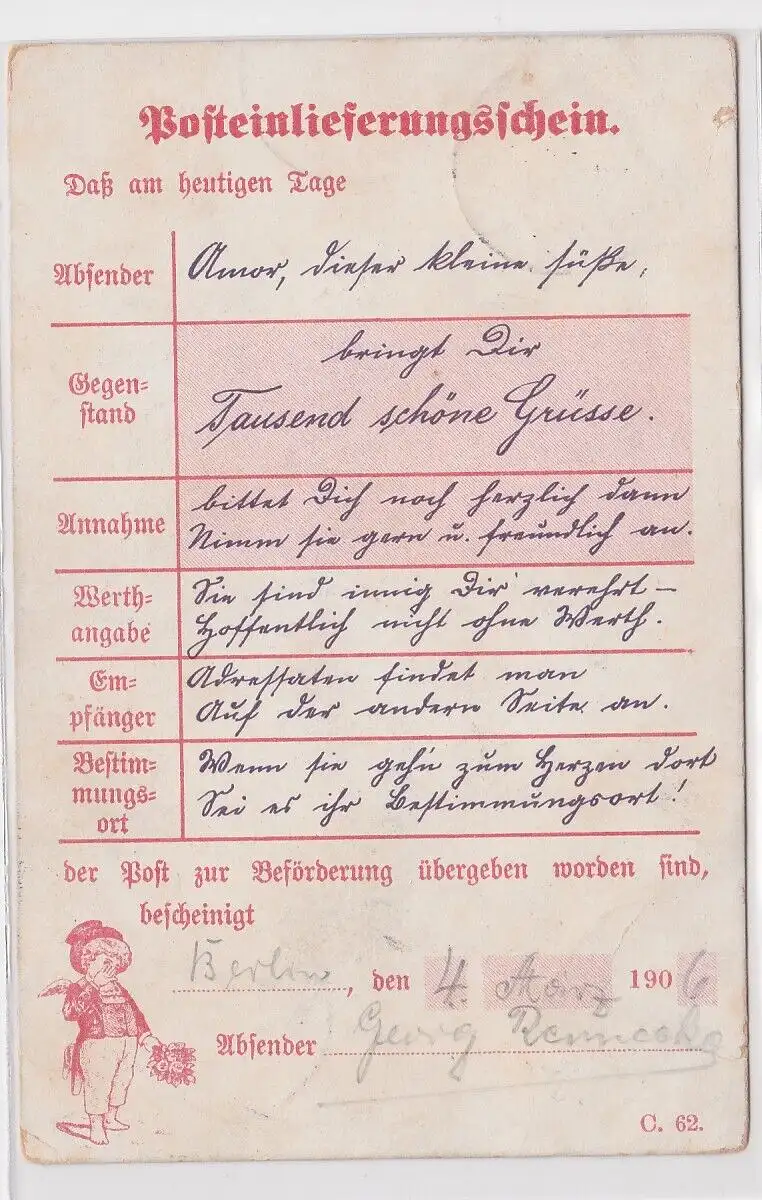 Posteinlieferungsschein.
Daß am heutigen Tage
Absender
Amor, dieser kleine süße,
Gegen=
stand
bringt Dir
Tausend schöne Grüsse.
Annahme
bittet Dich noch herzlich dann
Nimm sie gern u. freundlich an.
Werth=
angabe
Sie sind innig Dir verehrt –
Hoffentlich nicht ohne Werth.
Em=
pfänger
Adressaten findet man
Auf der andern Seite an.
Bestim=
mungs=
ort
Wenn sie geh'n zum Herzen dort
Sei es ihr Bestimmungsort!
der Post zur Beförderung übergeben worden sind,
bescheinigt
Berlin, den 4. März 1906
Absender Georg
C. 62.